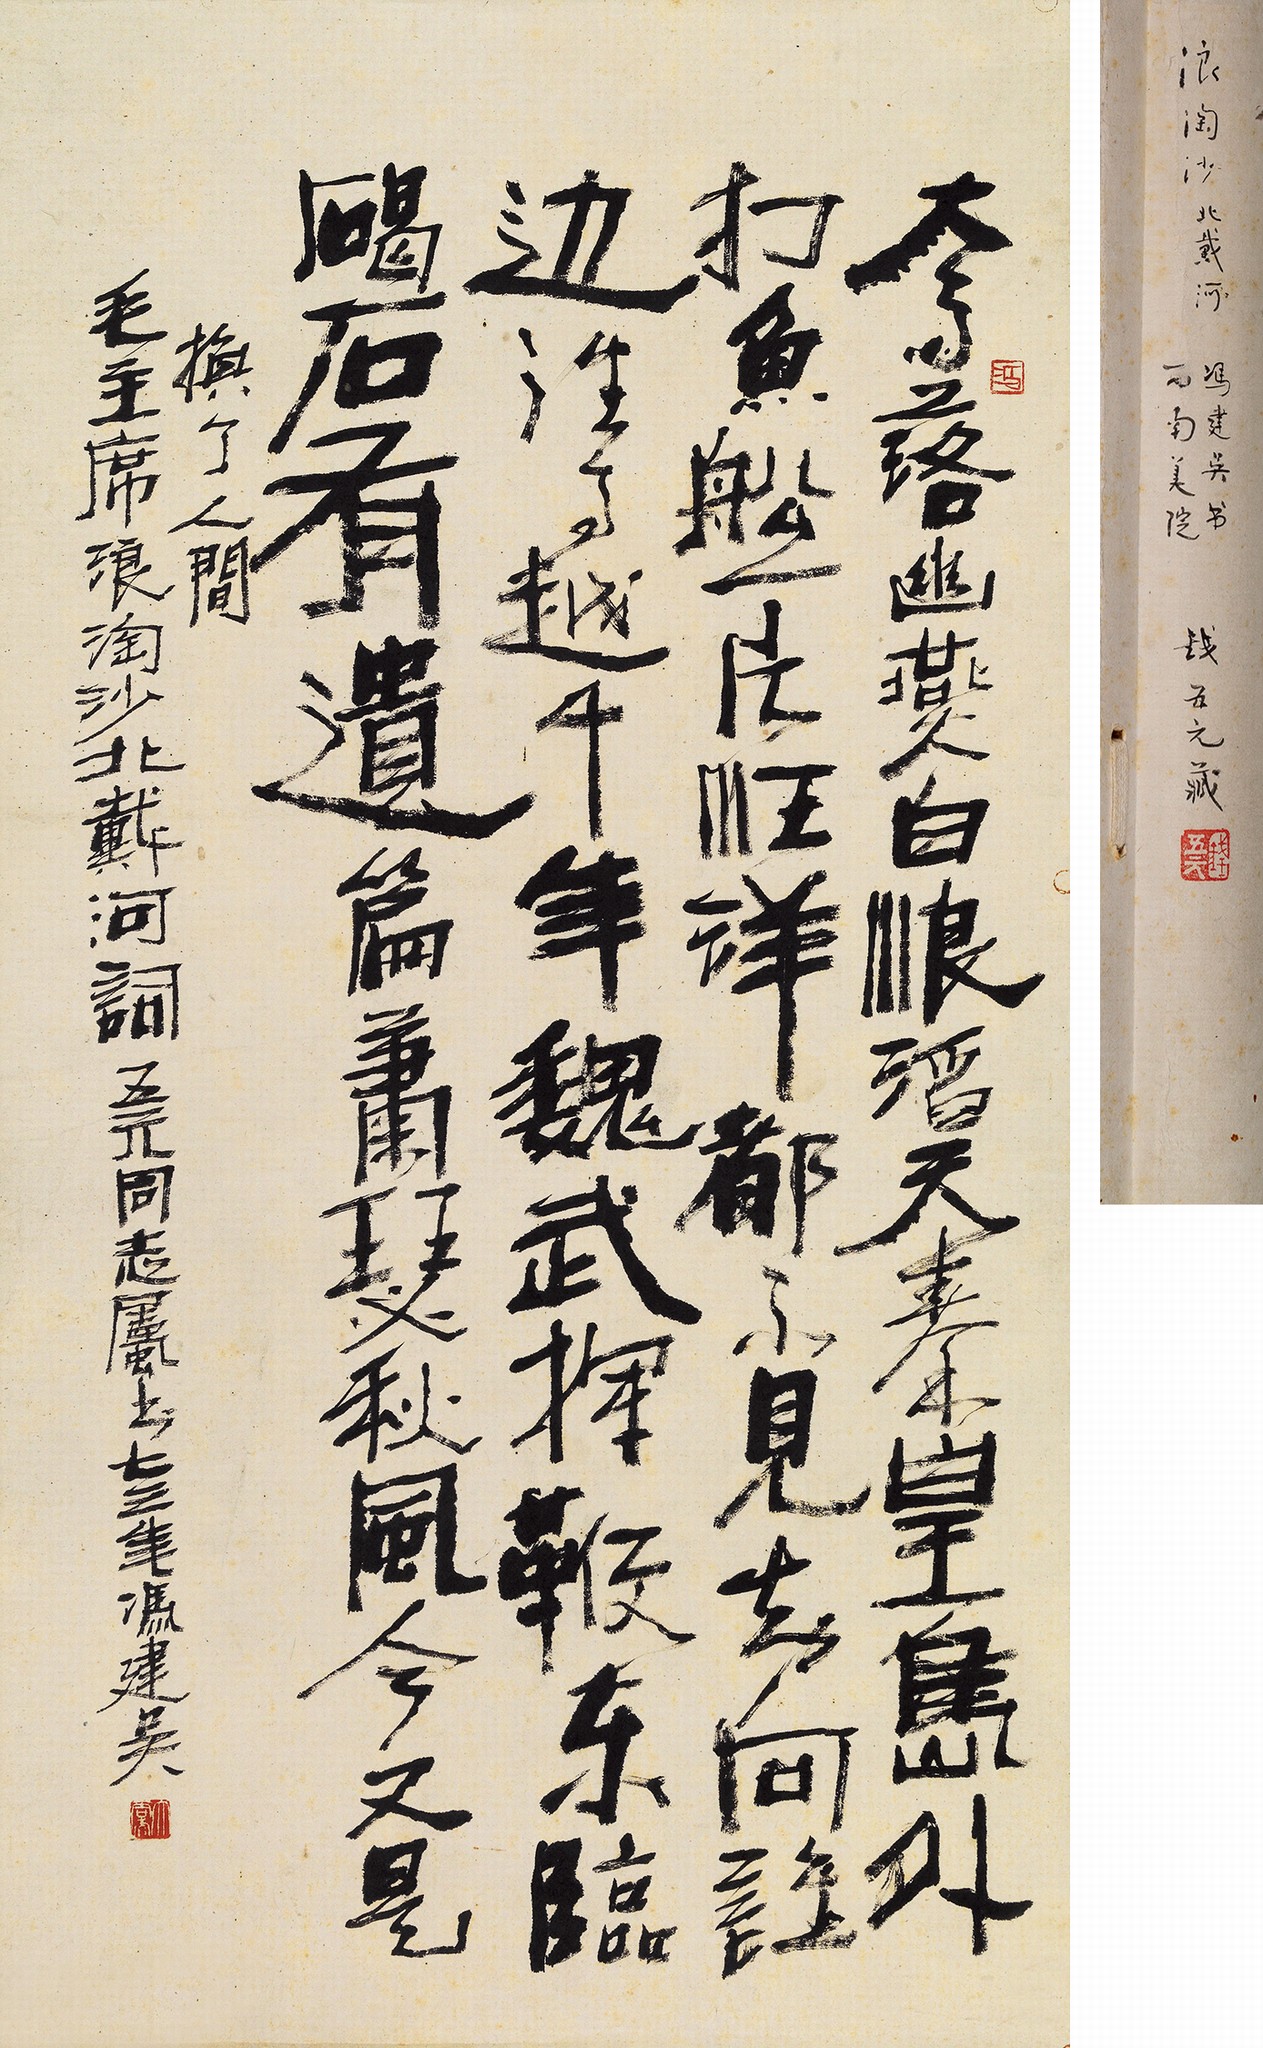 大雨落幽燕白浪滔天秦皇島外
打魚船一片汪洋都不見知向誰
边往事越千年魏武揮鞭东臨
碣石有遺篇蕭瑟秋風今又是
換了人間
毛主席浪淘沙北戴河詞 五元同志屬书七三年馮建吳
浪淘沙 北戴河 冯建吴书
西南美院
钱五元藏